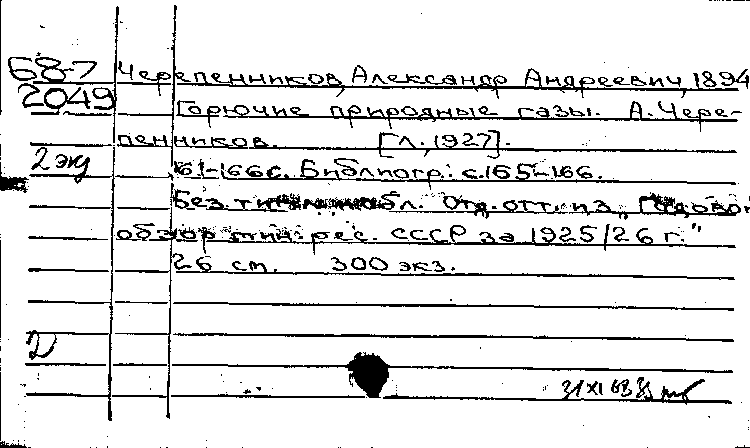 68-7 Черепенников, Александр Андреевич, 1894
2049 Горючие природные газы. А. Чере-
пенников. [Л., 1927].
2 экз 161-166 с. Библиогр: с. 165-166.
Без тит. и обл. Отд. отт. из "Годовой
обзор мин. рес. СССР за 1925/26 г."
26 см. 300 экз.
2